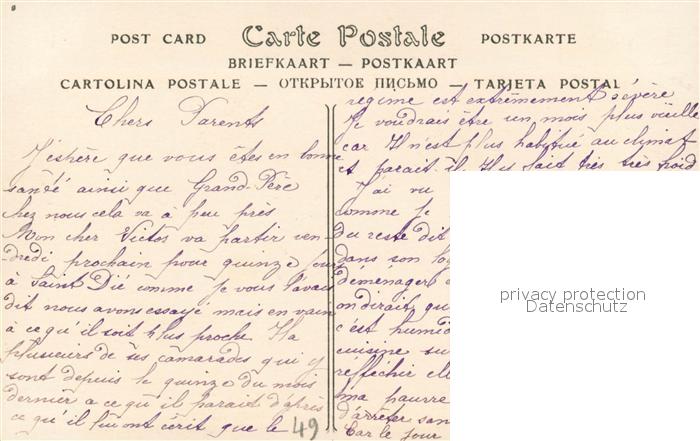 POST CARD Carte Postale POSTKARTE
BRIEFKAART — POSTKAART
CARTOLINA POSTALE — ОТКРЫТОЕ ПИСЬМО — TARJETA POSTAL
Chers Parents
J'éspère que vous êtes en bonne
santé ainsi que Grand-Père
chez nous cela va à peu près
Mon cher Victor va partir ven
dredi prochain pour quinze jours
à Saint Dié comme je vous l'avais
dit nous avons essayé mais en vain
à ce qu'il soit plus proche Il a
plusieurs de ses camarades qui y
sont depuis le quinze du mois
dernier a ce qu'il parait d'après
ce qu'il lui ont écrit que le
49
régime est extrêmement sévère
Je voudrais être un mois plus vieille
car Il n'est plus habitué au climat
et parait il Il y fait très très froid
J'ai vu
comme je
du reste dit
dans son
déménager
on dirait qu
c'est humid
cuisine su
réfléchir
ma pauvre
d'arrêter san
Car le jour
privacy protection
Datenschutz